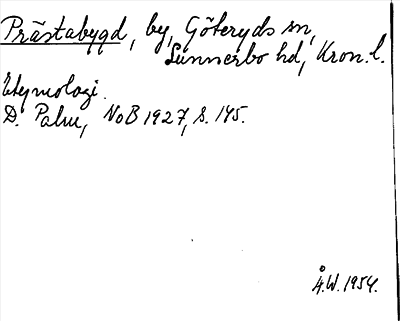 Prästabygd, by, Göteryds sn,
Sunnerbo hd, Kron. l.
Etymologi.
D. Palm, NoB 1927, s. 145.
Å.W. 1954.